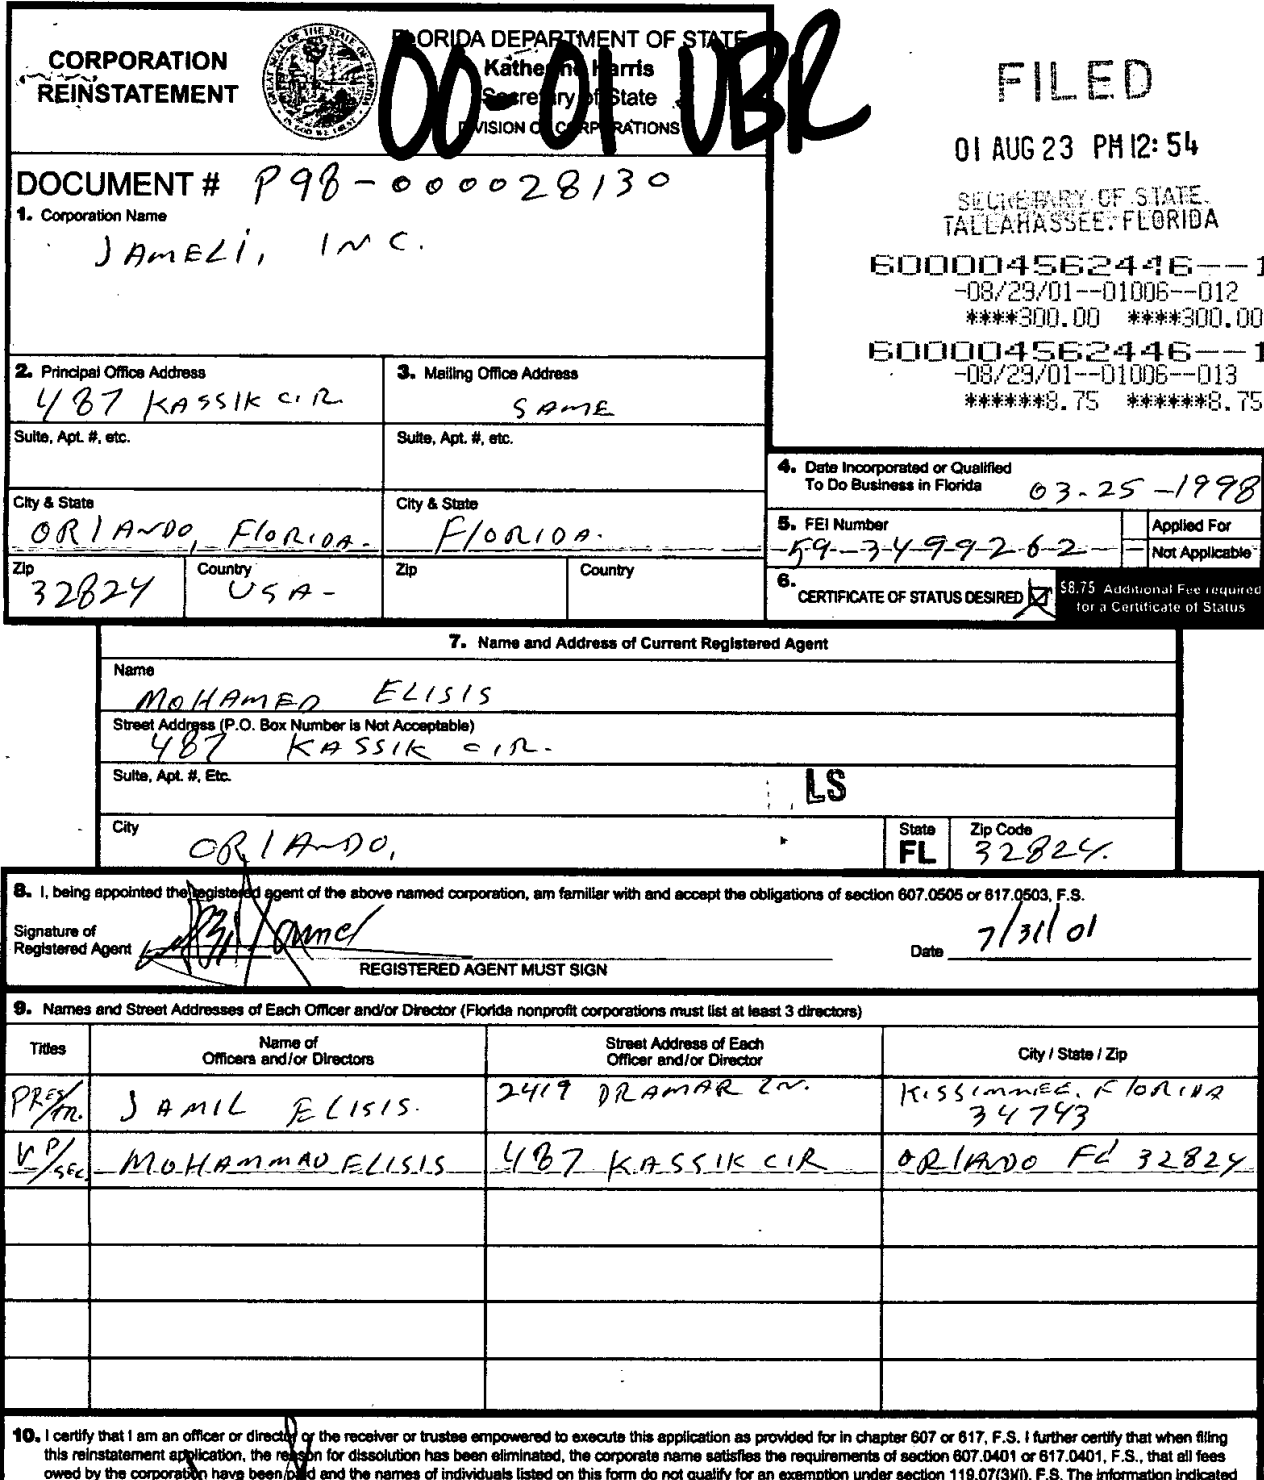 CORPORATION
REINSTATEMENT
FLORIDA DEPARTMENT OF STATE
Katherine Harris
Secretary of State
DIVISION OF CORPORATIONS
00-01 UBR
FILED
01 AUG 23 PM 12:54
SECRETARY OF STATE
TALLAHASSEE, FLORIDA
600004562446--1
-08/29/01--01006--012
****300.00 ****300.00
600004562446--1
-08/29/01--01006--013
******8.75 ******8.75
DOCUMENT # P98-000028130
1. Corporation Name
JAMELI, INC.
2. Principal Office Address
487 KASSIK CIR.
3. Mailing Office Address
SAME
Suite, Apt. #, etc.
Suite, Apt. #, etc.
City & State
ORLANDO, FLORIDA.
City & State
FLORIDA.
Zip
32824
Country
USA-
Zip
Country
4. Date Incorporated or Qualified
To Do Business in Florida 03-25-1998
5. FEI Number
59-3499262
Applied For
Not Applicable
6. CERTIFICATE OF STATUS DESIRED
$8.75 Additional Fee required
for a Certificate of Status
7. Name and Address of Current Registered Agent
Name
MOHAMED ELISIS
Street Address (P.O. Box Number is Not Acceptable)
487 KASSIK CIR.
Suite, Apt. #, Etc.
LS
City
ORLANDO,
State
FL
Zip Code
32824.
8. I, being appointed the registered agent of the above named corporation, am familiar with and accept the obligations of section 607.0505 or 617.0503, F.S.
Signature of
Registered Agent
Date 7/31/01
REGISTERED AGENT MUST SIGN
9. Names and Street Addresses of Each Officer and/or Director (Florida nonprofit corporations must list at least 3 directors)
Titles
Name of
Officers and/or Directors
Street Address of Each
Officer and/or Director
City / State / Zip
PRES/TR. JAMIL ELISIS. 2419 DRAMAR LN. KISSIMMEE, FLORIDA
34743
VP/SEC. MOHAMMAD ELISIS 487 KASSIK CIR ORLANDO FL 32824
10. I certify that I am an officer or director or the receiver or trustee empowered to execute this application as provided for in chapter 607 or 617, F.S. I further certify that when filing
this reinstatement application, the reason for dissolution has been eliminated, the corporate name satisfies the requirements of section 607.0401 or 617.0401, F.S., that all fees
owed by the corporation have been paid and the names of individuals listed on this form do not qualify for an exemption under section 119.07(3)(i), F.S. The information indicated